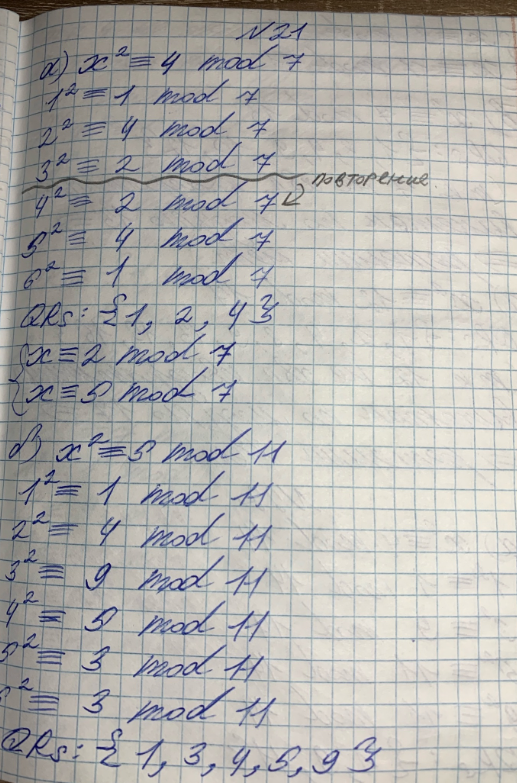 N21
а) x² ≡ 4 mod 7
1² ≡ 1 mod 7
2² ≡ 4 mod 7
3² ≡ 2 mod 7
повторение
4² ≡ 2 mod 7
5² ≡ 4 mod 7
6² ≡ 1 mod 7
QRs: {1, 2, 4}
{x ≡ 2 mod 7
x ≡ 5 mod 7
б) x² ≡ 5 mod 11
1² ≡ 1 mod 11
2² ≡ 4 mod 11
3² ≡ 9 mod 11
4² ≡ 5 mod 11
5² ≡ 3 mod 11
² ≡ 3 mod 11
QRs: {1, 3, 4, 5, 9}